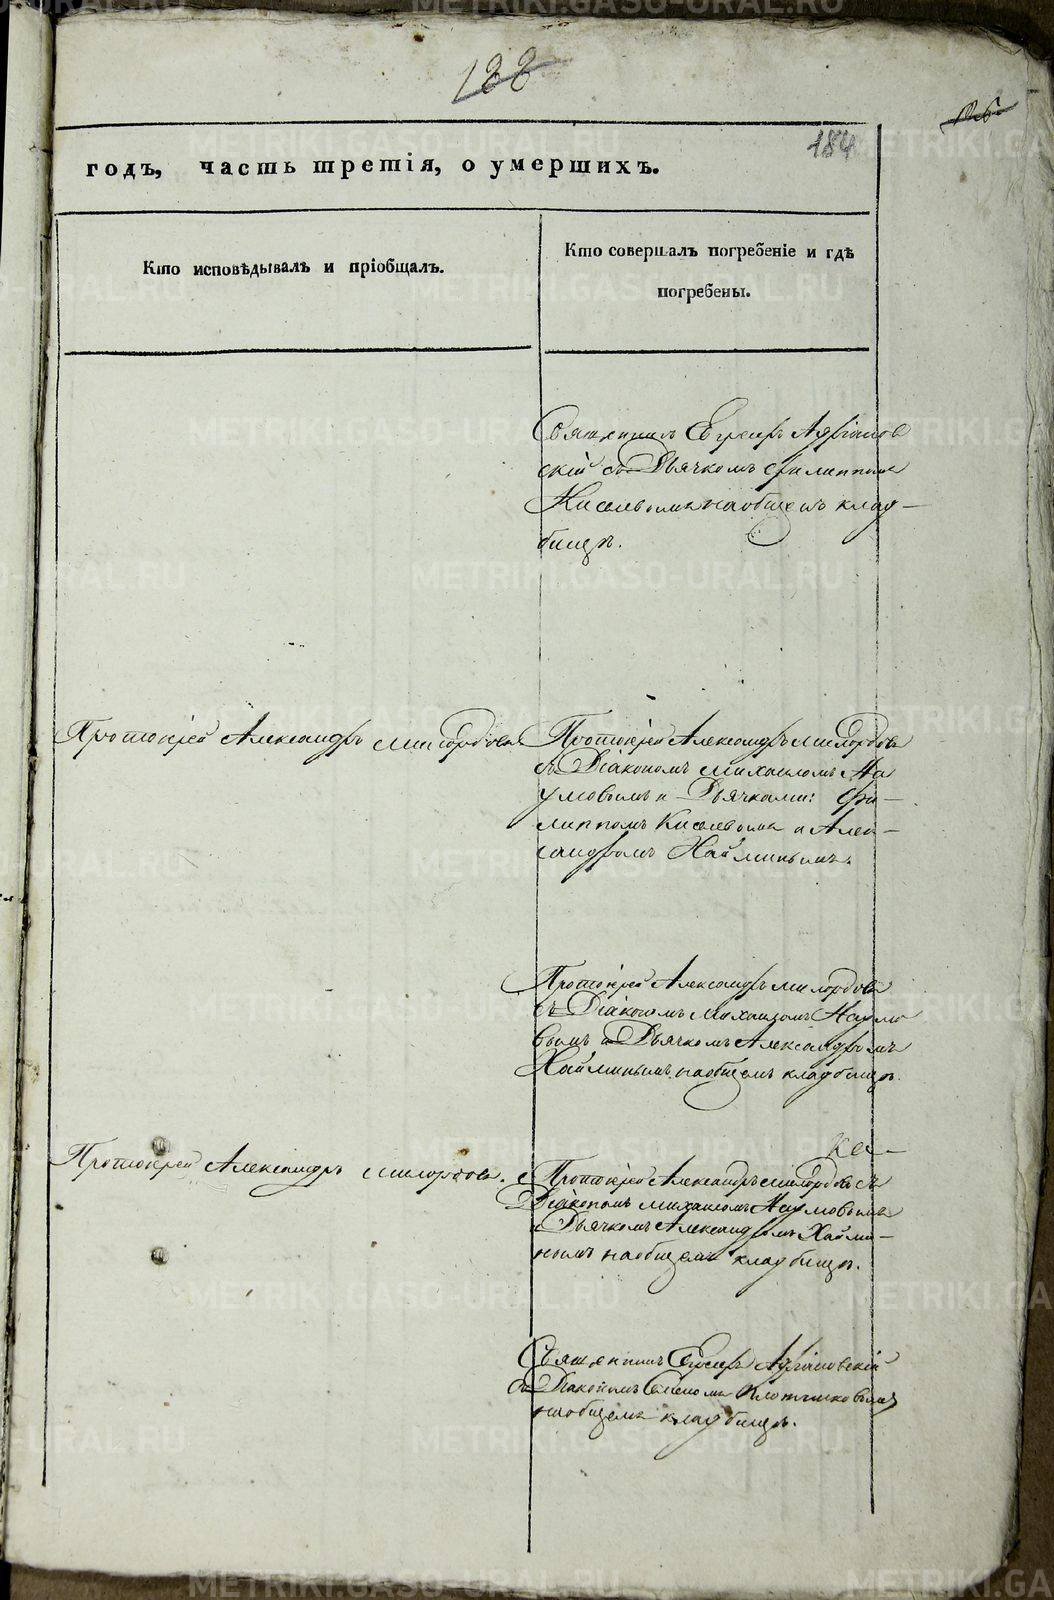 188
126
184
годъ, часть третія, о умершихъ.
Кто исповѣдывалъ и пріобщалъ.
Кто совершалъ погребеніе и гдѣ
погребены.
Священникъ Егоръ Адріанов
скій съ Дьячкомъ Филиппомъ
Киселевымъ на общемъ клад-
бищѣ.
Протоіерей Александръ Милордовъ
Протоіерей Александръ Милордовъ
съ Діакономъ Михаиломъ На
умовымъ и Дьячками: Фи-
липпомъ Киселевымъ и Алек-
сандромъ Хайминымъ.
Протоіерей Александръ Милордовъ
съ Діакономъ Михаиломъ Наумо
вымъ и Дьячкомъ Александромъ
Хайминымъ на общемъ кладбищѣ.
Протоіерей Александръ Милордовъ.
Протоіерей Александръ Милордовъ съ
Діакономъ Михаиломъ Наумовымъ
и Дьячкомъ Александромъ Хайми-
нымъ на общемъ кладбищѣ.
Священникъ Егоръ Адріановскій
съ Діакономъ Плотниковымъ
на общемъ кладбищѣ.
METRIKI.GASO-URAL.RU